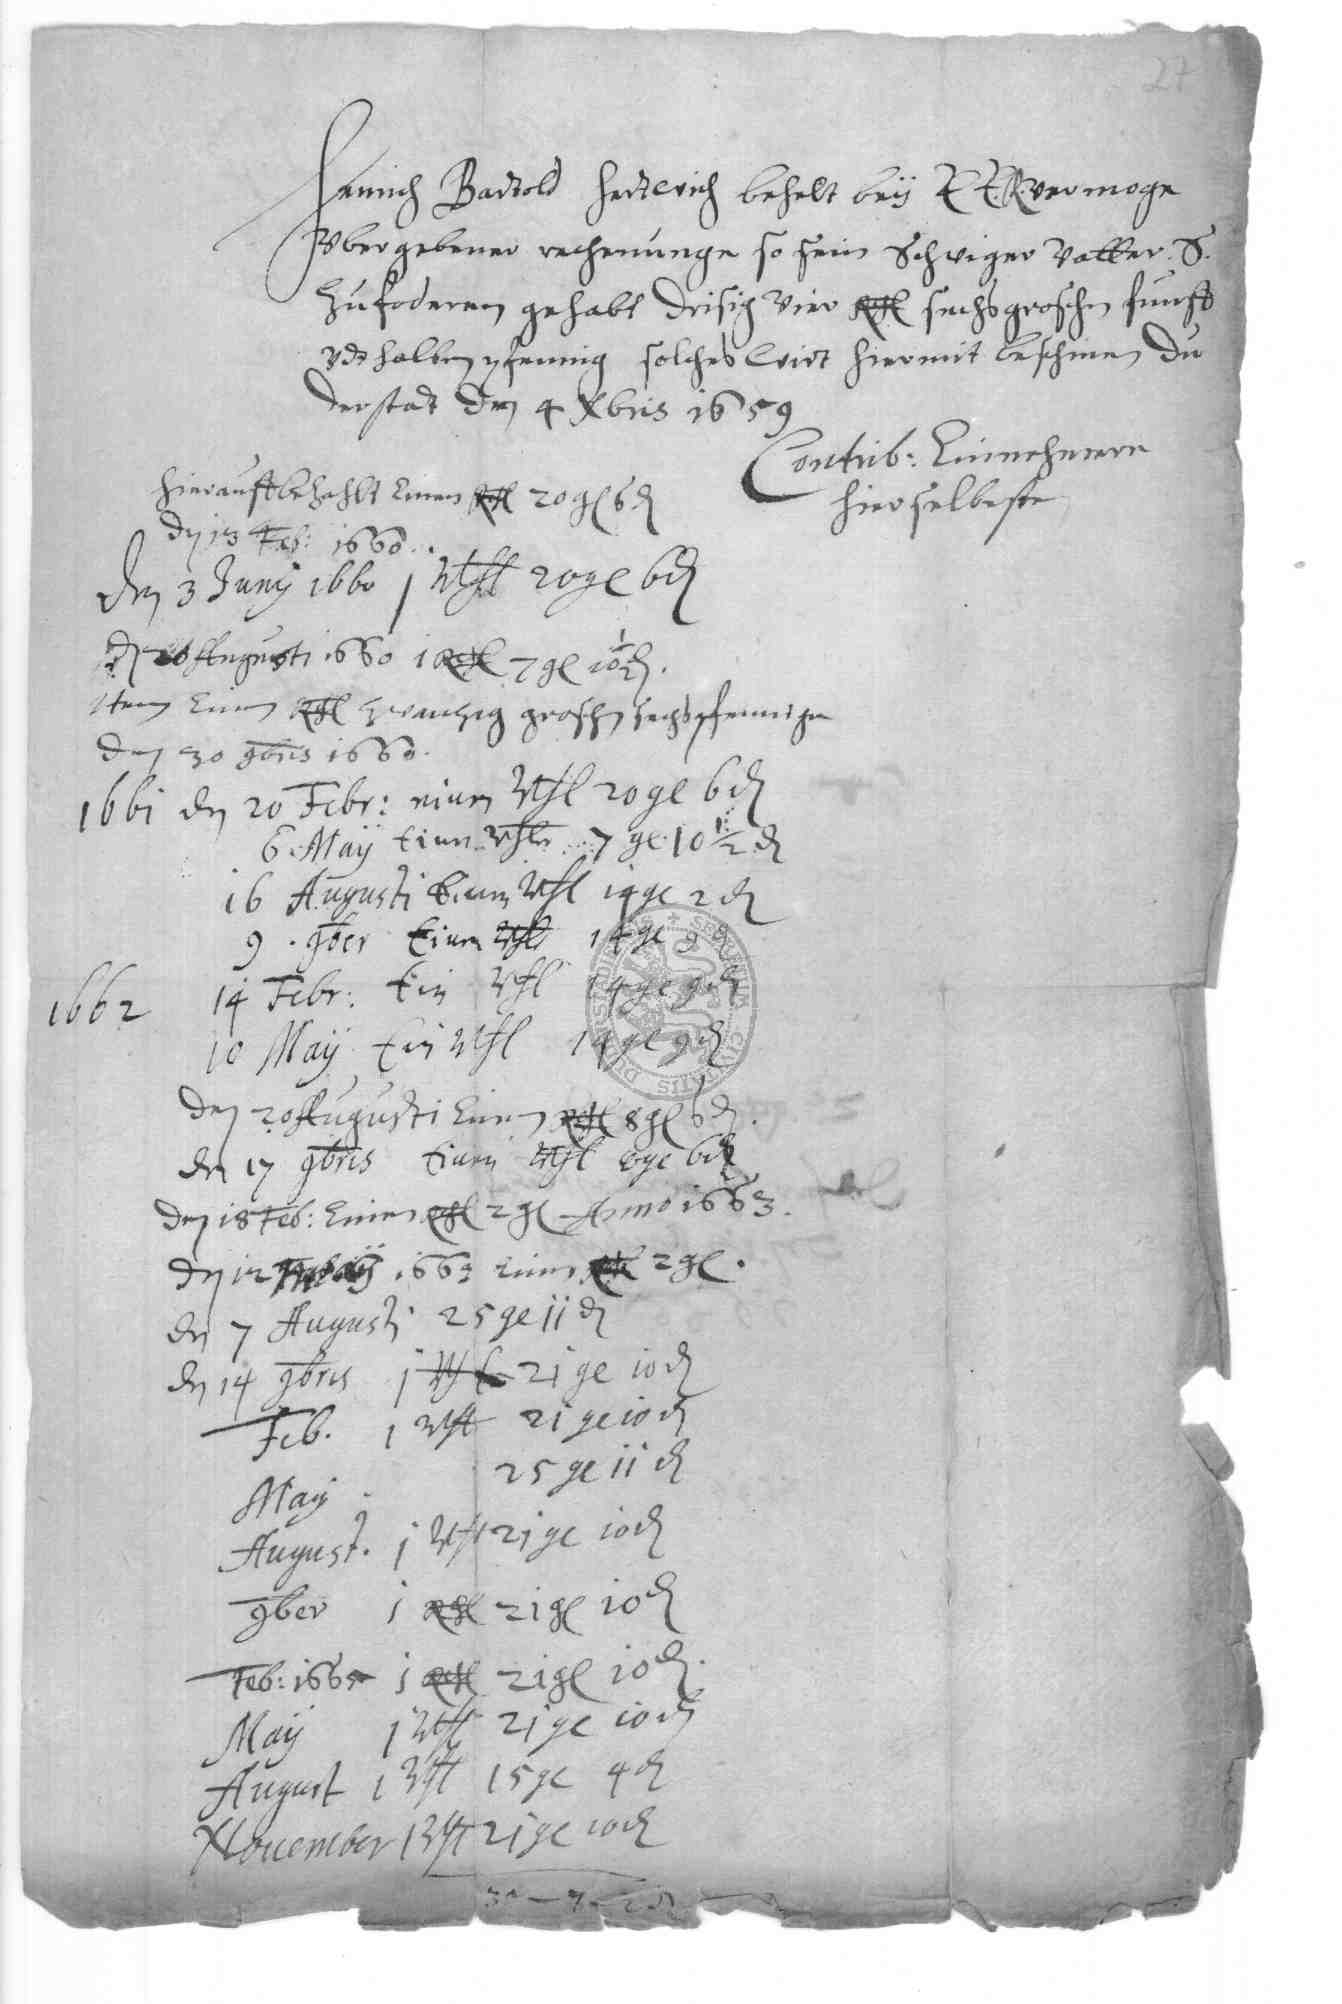 27
Hennich Bartold Hertwich behelt beÿ E. E. R. vermoge
Vbergebener rechenunge so sein Schwiger Vatter S.
Zufoderen gehabt drisig Vier Rthl sechs groschen funff
vdt halben pfennig solches wirt hiermit bescheinet Du
derstat den 4 Xbris 1659
Contrib: Einnehmere
hierselbesten
hierauff bezahlt Einen Rthl 20 gl 6 d
den 13 Feb: 1660.
den 3 Junÿ 1660 j Rthl 20 gl 6 d
d 20 Augusti 1660 1 Rthl 7 gl 10½ d.
Item Einen Rthl zwantzig groschen sechs pfennige
den 30 9bris 1660.
1661 den 20 Febr: einen Rthl 20 gl 6 d
6 Maÿ Einen Rthlr 7 gl. 10 ½ d
16 Augusti Einen Rthl 14 gl 2 d
9. 9ber Einen Rthl 14 gl 9 d
1662 14 Febr: Ein Rthl 14 gl 9 d
10 Maÿ Ein Rthl 14 gl 9 d
SECRETUM CIVITATIS
den 20 Augusti Einen Rthl 8 gl 6 d.
den 17 9bris Einen Rthl 8 gl 6 d
den 18 Feb: Einen Rthl 2 gl Anno 1663.
den 12 Maÿ 1663 Einen Rthl 2 gl.
den 7 Augusti 25 gl 11 d
den 14 9bris j Rthl 21 gl 10 d
Feb. 1 Rthl 21 gl 10 d
Maÿ. 25 gl 11 d
August. j Rthl 21 gl 10 d
9ber 1 Rthl 21 gl 10 d
Feb: 1665 1 Rthl 21 gl 10 d.
Maÿ j Rthl 21 gl 10 d
August 1 Rthl 15 gl 4 d
November 1 Rthl 21 gl 10 d